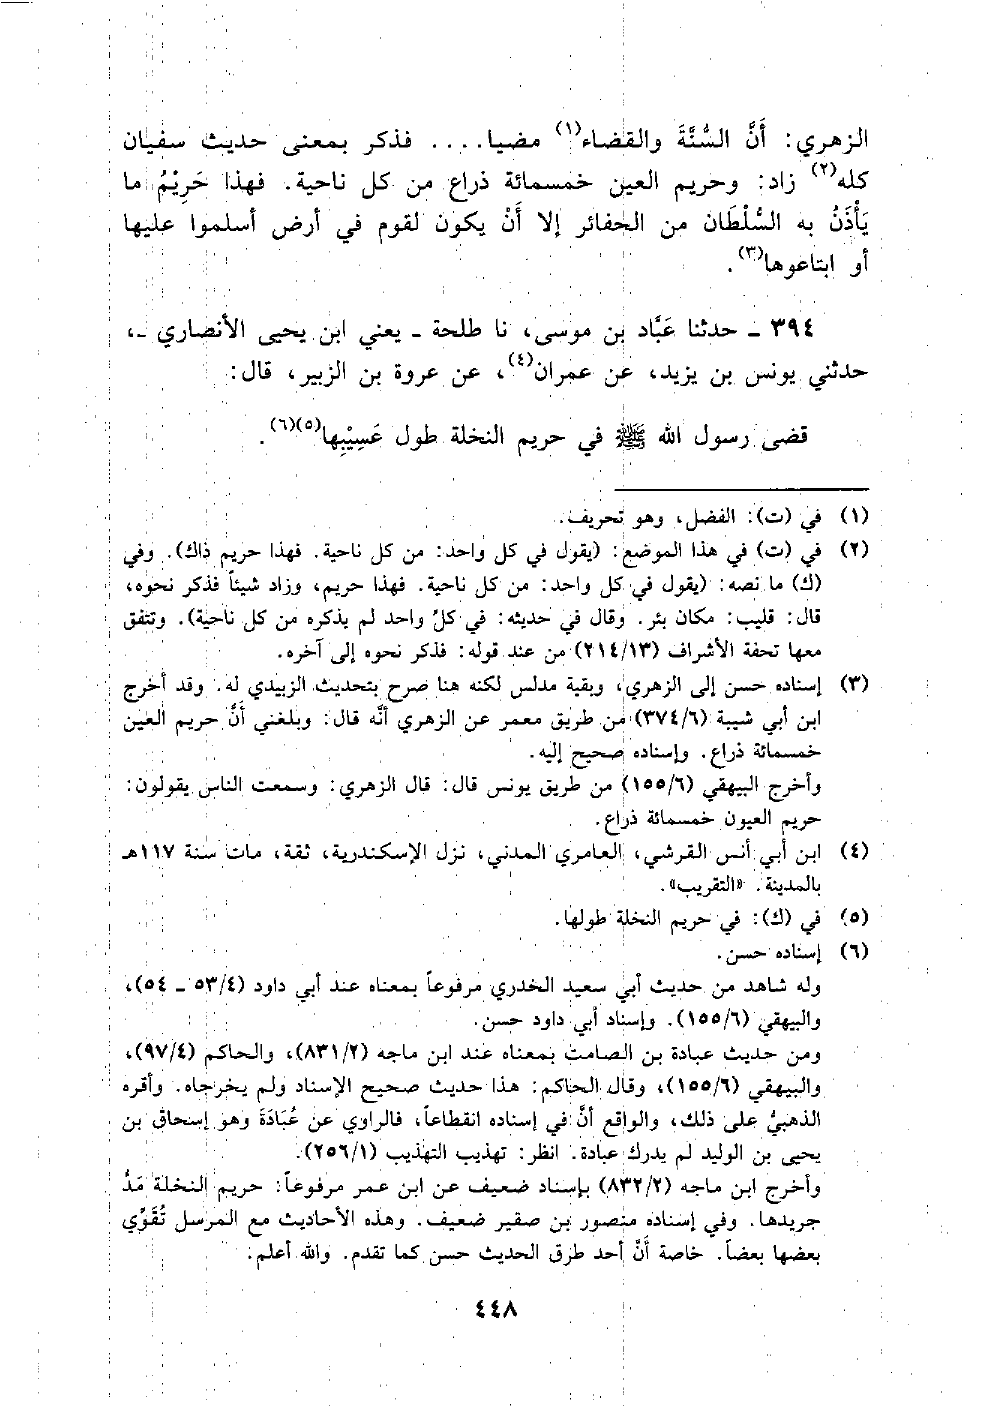 الزهري: أَنَّ السُّنَّةَ والقضاء(١) مضيا.... فذكر بمعنى حديث سفيان
كله(٢) زاد: وحريم العين خمسمائة ذراع من كل ناحية. فهذا حَرِيْمُ ما
يَأْذَنُ به السُّلْطَان من الحفائر إلا أَنْ يكون لقوم في أرض أسلموا عليها
أو ابتاعوها(٣).
٣٩٤ ـ حدثنا عَبَّاد بن موسى، نا طلحة ـ يعني ابن يحيى الأنصاري ـ،
حدثني يونس بن يزيد، عن عمران(٤)، عن عروة بن الزبير، قال:
قضى رسول الله ﷺ في حريم النخلة طول عَسِيْبِها(٥)(٦).
(١) في (ت): الفضل، وهو تحريف.
(٢) في (ت) في هذا الموضع: (يقول في كل واحد: من كل ناحية. فهذا حريم ذاك). وفي
(ك) ما نصه: (يقول في كل واحد: من كل ناحية. فهذا حريم، وزاد شيئاً فذكر نحوه،
قال: قليب: مكان بئر. وقال في حديثه: في كلِّ واحد لم يذكره من كل ناحية). وتتفق
معها تحفة الأشراف (٢١٤/١٣) من عند قوله: فذكر نحوه إلى آخره.
(٣) إسناده حسن إلى الزهري، وبقية مدلس لكنه هنا صرح بتحديث الزبيدي له. وقد أخرج
ابن أبي شيبة (٣٧٤/٦) من طريق معمر عن الزهري أنَّه قال: وبلغني أنَّ حريم العين
خمسمائة ذراع. وإسناده صحيح إليه.
وأخرج البيهقي (١٥٥/٦) من طريق يونس قال: قال الزهري: وسمعت الناس يقولون:
حريم العيون خمسمائة ذراع.
(٤) ابن أبي أنس القرشي، العامري المدني، نزل الإسكندرية، ثقة، مات سنة ١١٧هـ
بالمدينة. «التقريب».
(٥) في (ك): في حريم النخلة طولها.
(٦) إسناده حسن.
وله شاهد من حديث أبي سعيد الخدري مرفوعاً بمعناه عند أبي داود (٥٣/٤ ـ ٥٤)،
والبيهقي (١٥٥/٦). وإسناد أبي داود حسن.
ومن حديث عبادة بن الصامت بمعناه عند ابن ماجه (٨٣١/٢)، والحاكم (٩٧/٤)،
والبيهقي (١٥٥/٦)، وقال الحاكم: هذا حديث صحيح الإسناد ولم يخرجاه. وأقره
الذهبيُّ على ذلك، والواقع أنَّ في إسناده انقطاعاً، فالراوي عن عُبَادَةَ وهو إسحاق بن
يحيى بن الوليد لم يدرك عبادة. انظر: تهذيب التهذيب (٢٥٦/١).
وأخرج ابن ماجه (٨٣٢/٢) بإسناد ضعيف عن ابن عمر مرفوعاً: حريم النخلة مَدُّ
جريدها. وفي إسناده منصور بن صقير ضعيف. وهذه الأحاديث مع المرسل تُقَوِّي
بعضها بعضاً. خاصة أَنَّ أحد طرق الحديث حسن كما تقدم. والله أعلم.
٤٤٨